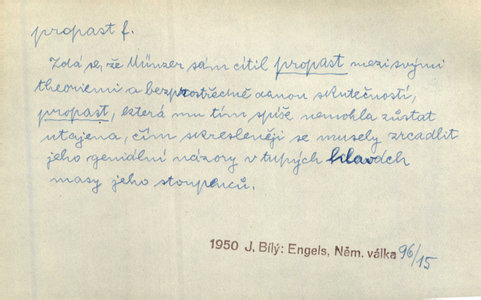 propast f.
Zdá se, že Münzer sám cítil propast mezi svými
theoriemi a bezprostředně danou skutečností,
propast, která mu tím spíše nemohla zůstat
utajena, čím zkresleněji se musely zrcadlit
jeho geniální názory v tupých hlavách
masy jeho stoupenců.
1950 J. Bílý: Engels, Něm. válka 96/15